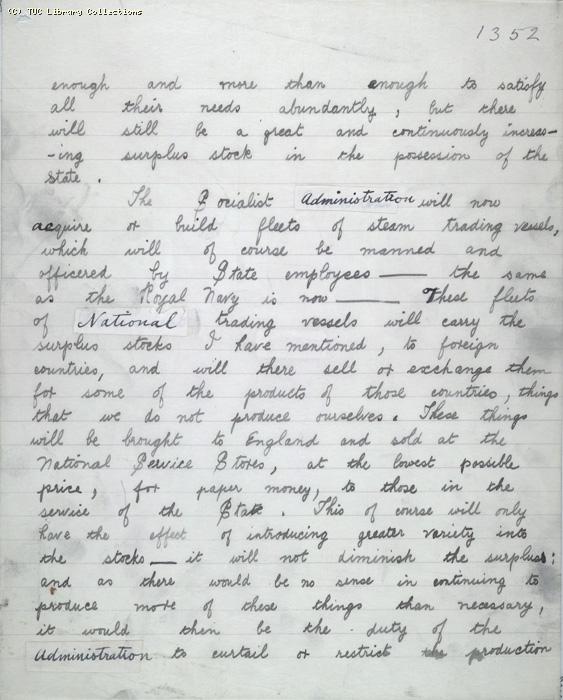 (C) TUC Library Collections
1352
enough and more than enough to satisfy
all their needs abundantly, but there
will still be a great and continuously increas-
-ing surplus stock in the possession of the
State.
The Socialist Administration will now
acquire or build fleets of steam trading vessels,
which will of course be manned and
officered by State employees — the same
as the Royal Navy is now — These fleets
of National trading vessels will carry the
surplus stocks I have mentioned, to foreign
countries, and will there sell or exchange them
for some of the products of those countries, things
that we do not produce ourselves. These things
will be brought to England and sold at the
National Service Stores, at the lowest possible
price, for paper money, to those in the
service of the State. This of course will only
have the effect of introducing greater variety into
the stocks — it will not diminish the surplus:
and as there would be no sense in continuing to
produce more of these things than necessary,
it would then be the duty of the
Administration to curtail or restrict the production